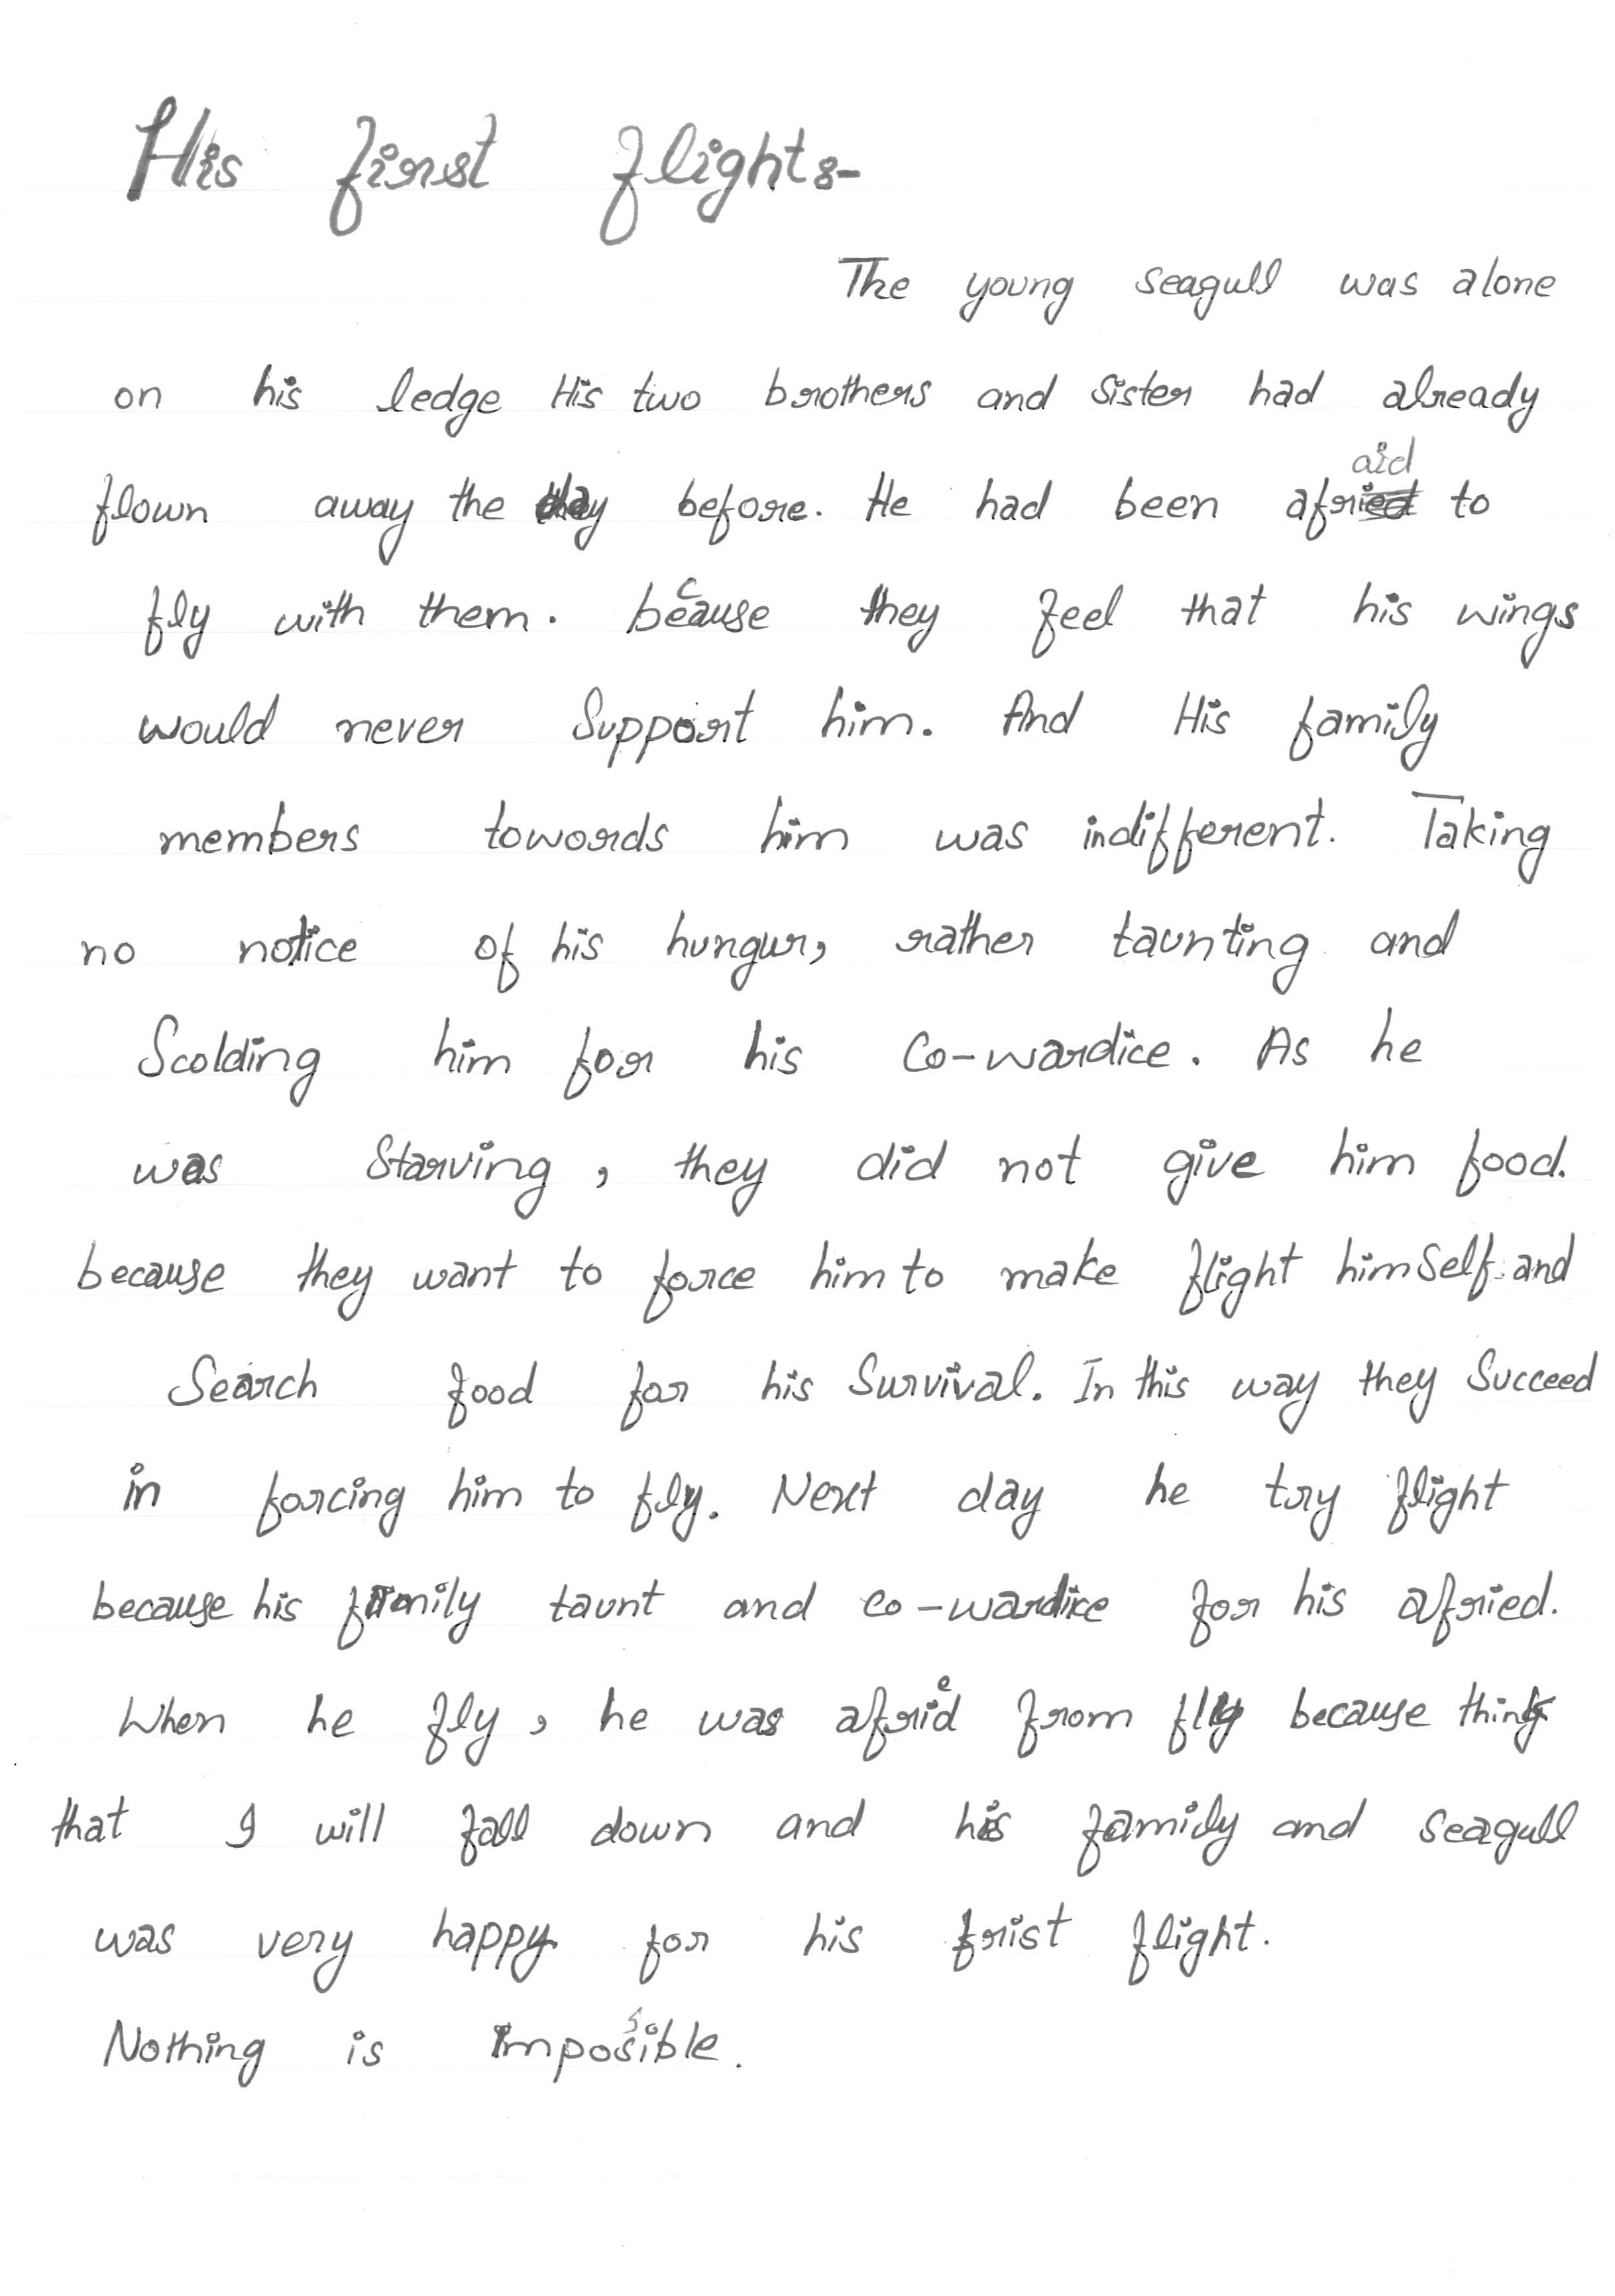 His first flight:-
The young seagull was alone
on his ledge His two brothers and sister had already
flown away the day before. He had been afraid to
fly with them. because they feel that his wings
would never Support him. And His family
members towords him was indifferent. Taking
no notice of his hungur, rather taunting and
Scolding him for his Co-wardice. As he
was Starving, they did not give him food.
because they want to force him to make flight himself and
Search food for his Survival. In this way they Succeed
in forcing him to fly. Next day he try flight
because his family taunt and co-wardice for his afried.
When he fly, he was afried from fly because think
that I will fall down and his family and seagull
was very happy for his frist flight.
Nothing is Impossible.